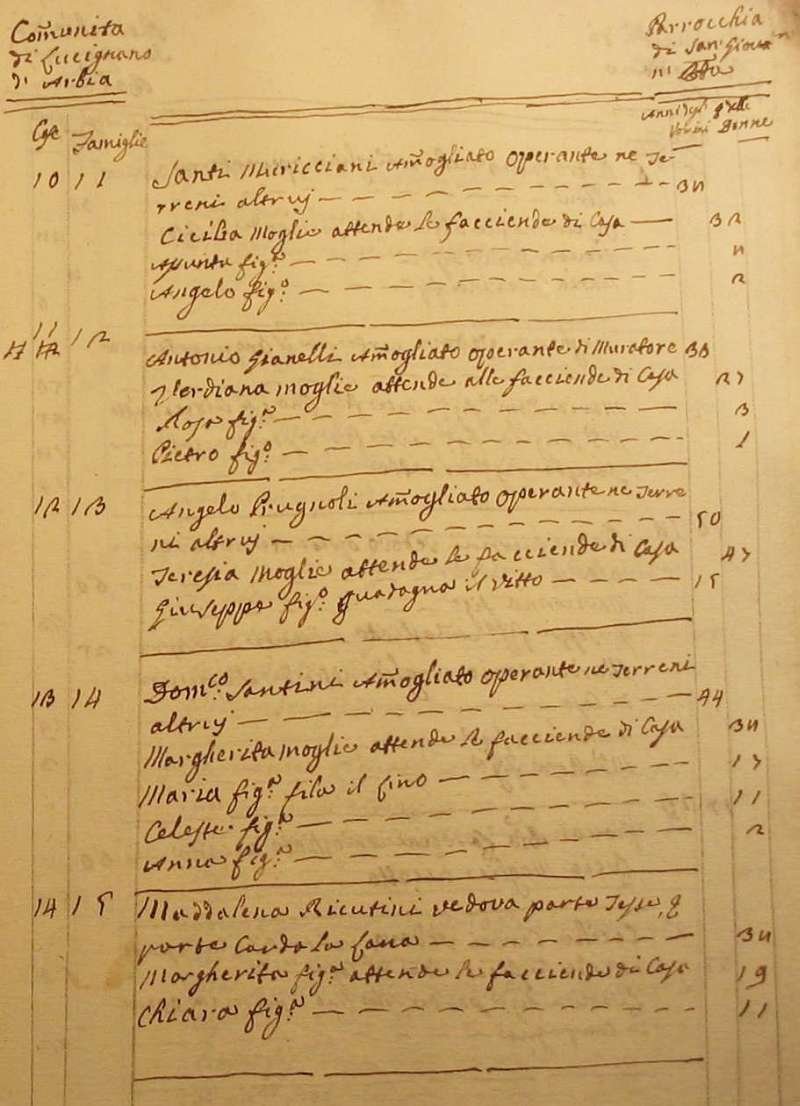 Comunita
di Lucignano
di Arbia
Parrocchia
di San Giovan
ni Bta
Cse Famiglie
Anni degl Uomini delle Donne
10 11 Santi Muricciani Amogliato operante ne Te
rreni altruj 34
Cicilia Moglie attende le facciende di Casa 32
Asunta figa 4
Angelo figo 2
11 12 Antonio Gianelli Amogliato operante di Muratore 38
Verdiana moglie attende alle facciende di Casa 27
Rosa figa 3
Pietro figo 1
12 13 Angelo Prugnoli Amogliato operante ne Terre
ni altruj 50
Teresia Moglie attende le facciende di Casa 47
Giuseppe figo guadagna il vitto 15
13 14 Domco Santini Amogliato operante ne Terreni
altruj 44
Margherita moglie attende le facciende di Casa 34
Maria figa fila il lino 17
Celeste figa 11
Anna figa 2
14 15 Maddalena Ricutini vedova parte Tesse, e
parte Carda la Lana 34
Margherita figa attende le facciende di Casa 19
Chiara figa 11